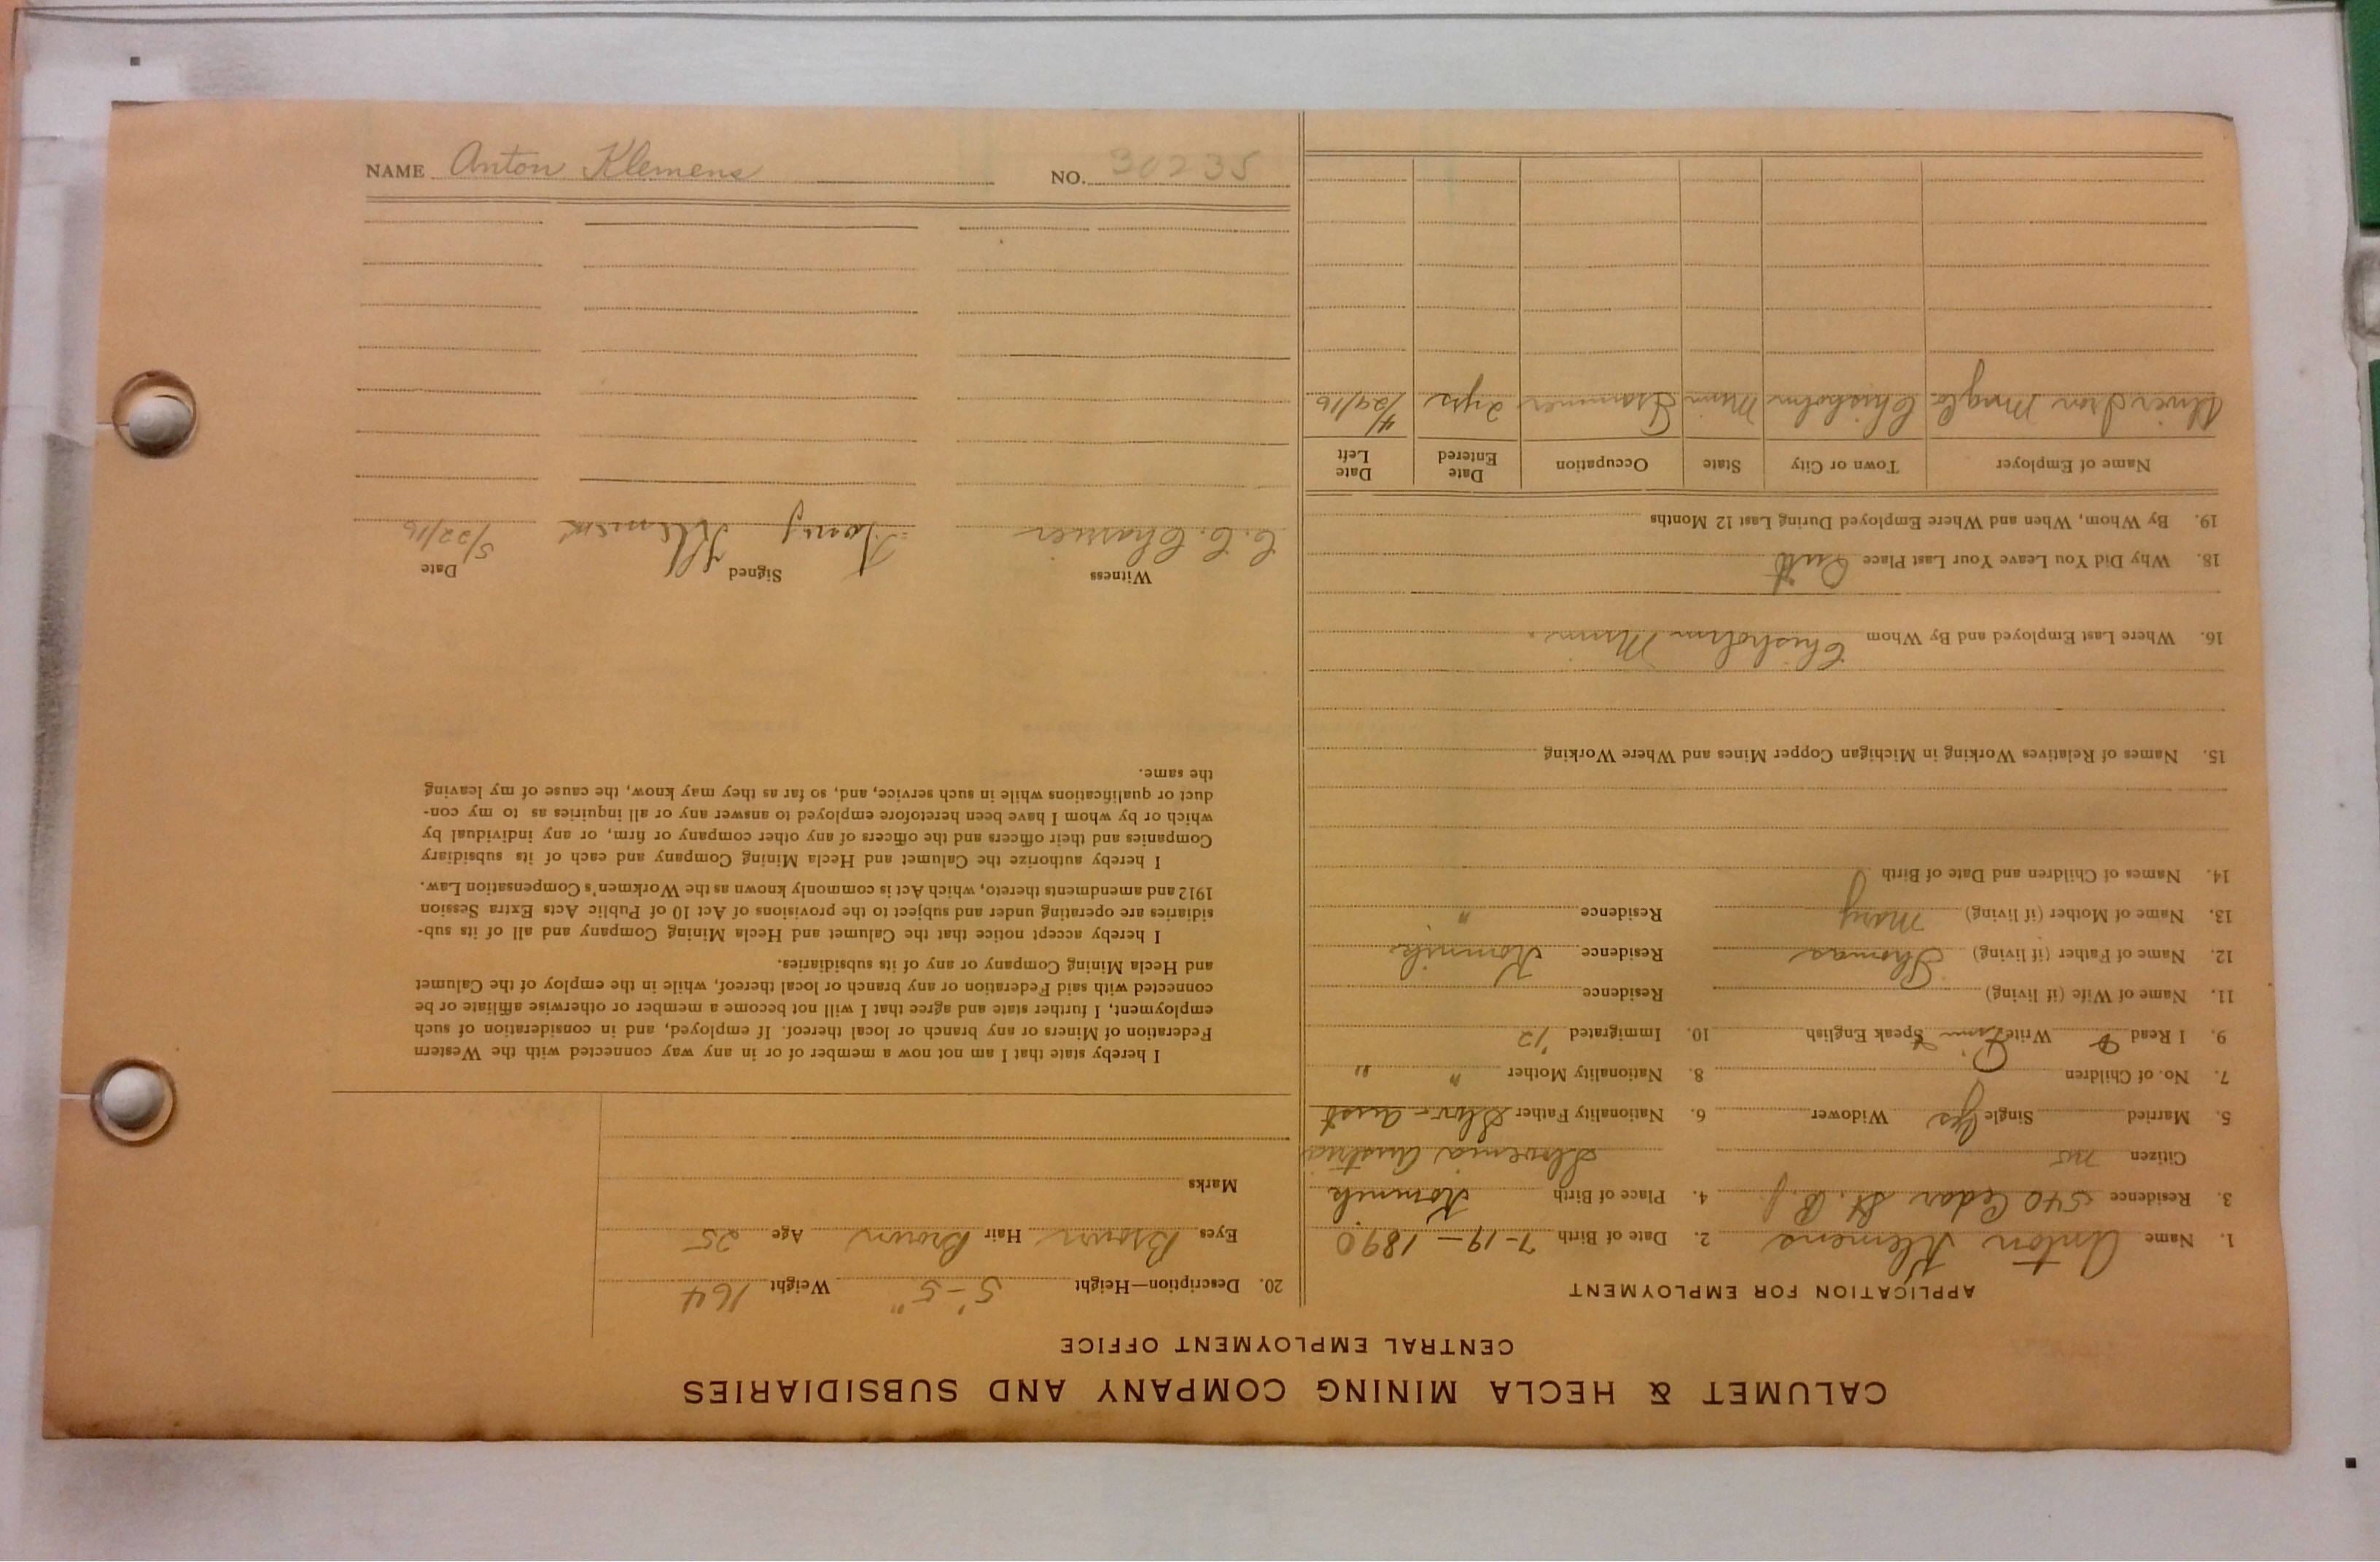 CALUMET & HECLA MINING COMPANY AND SUBSIDIARIES
CENTRAL EMPLOYMENT OFFICE
APPLICATION FOR EMPLOYMENT
1. Name Anton Klemens 2. Date of Birth 7-19-1890
3. Residence 540 Cedar St. 4. Place of Birth
Citizen no Slovenia Austria
5. Married Single Yes Widower 6. Nationality Father Slov-Aust
7. No. of Children 8. Nationality Mother " "
9. I Read Write Speak English 10. Immigrated '12
11. Name of Wife (if living) Residence
12. Name of Father (if living) Thomas Residence
13. Name of Mother (if living) Mary Residence "
14. Names of Children and Date of Birth
15. Names of Relatives Working in Michigan Copper Mines and Where Working
16. Where Last Employed and By Whom Chisholm Minn.
18. Why Did You Leave Your Last Place Quit
19. By Whom, When and Where Employed During Last 12 Months
Name of Employer Town or City State Occupation Date Entered Date Left
Oliver Iron Mng Co Chisholm Minn Trammer 2 yrs 4/24/16
20. Description—Height 5'-5" Weight 164
Eyes Brown Hair Brown Age 25
Marks
I hereby state that I am not now a member of or in any way connected with the Western
Federation of Miners or any branch or local thereof. If employed, and in consideration of such
employment, I further state and agree that I will not become a member or otherwise affiliate or be
connected with said Federation or any branch or local thereof, while in the employ of the Calumet
and Hecla Mining Company or any of its subsidiaries.
I hereby accept notice that the Calumet and Hecla Mining Company and all of its sub-
sidiaries are operating under and subject to the provisions of Act 10 of Public Acts Extra Session
1912 and amendments thereto, which Act is commonly known as the Workmen's Compensation Law.
I hereby authorize the Calumet and Hecla Mining Company and each of its subsidiary
Companies and their officers and the officers of any other company or firm, or any individual by
which or by whom I have been heretofore employed to answer any or all inquiries as to my con-
duct or qualifications while in such service, and, so far as they may know, the cause of my leaving
the same.
Witness Signed Date
C. C. Tony Klemens 5/22/16
NAME Anton Klemens NO. 30235